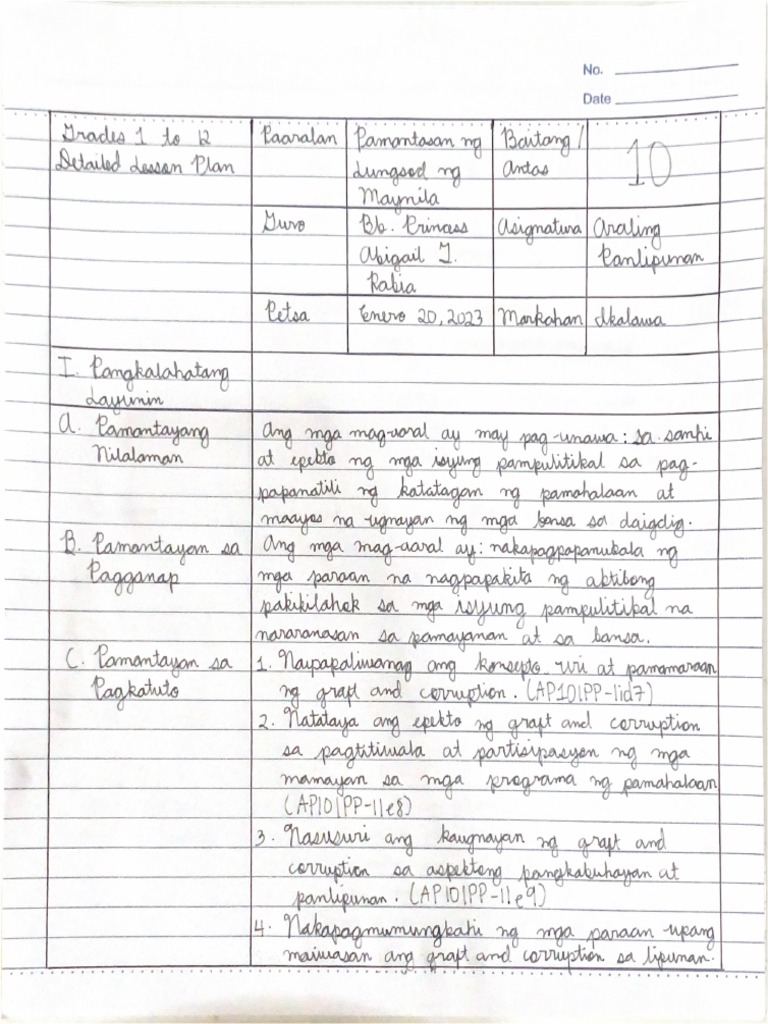 No.
Date
Grades 1 to 12
Detailed Lesson Plan
Paaralan
Pamantasan ng
Lungsod ng
Maynila
Baitang/
Antas
10
Guro
Bb. Princess
Abigail T.
Rabia
Asignatura
Araling
Panlipunan
Petsa
Enero 20, 2023
Markahan
Ikalawa
I. Pangkalahatang
Layunin
A. Pamantayang
Nilalaman
Ang mga mag-aaral ay may pag-unawa: sa sanhi
at epekto ng mga isyung pampulitikal sa pag-
papanatili ng katatagan ng pamahalaan at
maayos na ugnayan ng mga bansa sa daigdig.
B. Pamantayan sa
Pagganap
Ang mga mag-aaral ay: nakapagpapanukala ng
mga paraan na nagpapakita ng aktibong
pakikilahok sa mga isyung pampulitikal na
nararanasan sa pamayanan at sa bansa.
C. Pamantayan sa
Pagkatuto
1. Naipapaliwanag ang konsepto uri at pamamaraan
ng graft and corruption. (AP10IPP-IId7)
2. Natataya ang epekto ng graft and corruption
sa pagtitiwala at partisipasyon ng mga
mamayan sa mga programa ng pamahalaan
(AP10IPP-IIe8)
3. Nasusuri ang kaugnayan ng graft and
corruption sa aspektong pangkabuhayan at
panlipunan. (AP10IPP-IIe9)
4. Nakapagmumungkahi ng mga paraan upang
maiwasan ang graft and corruption sa lipunan.